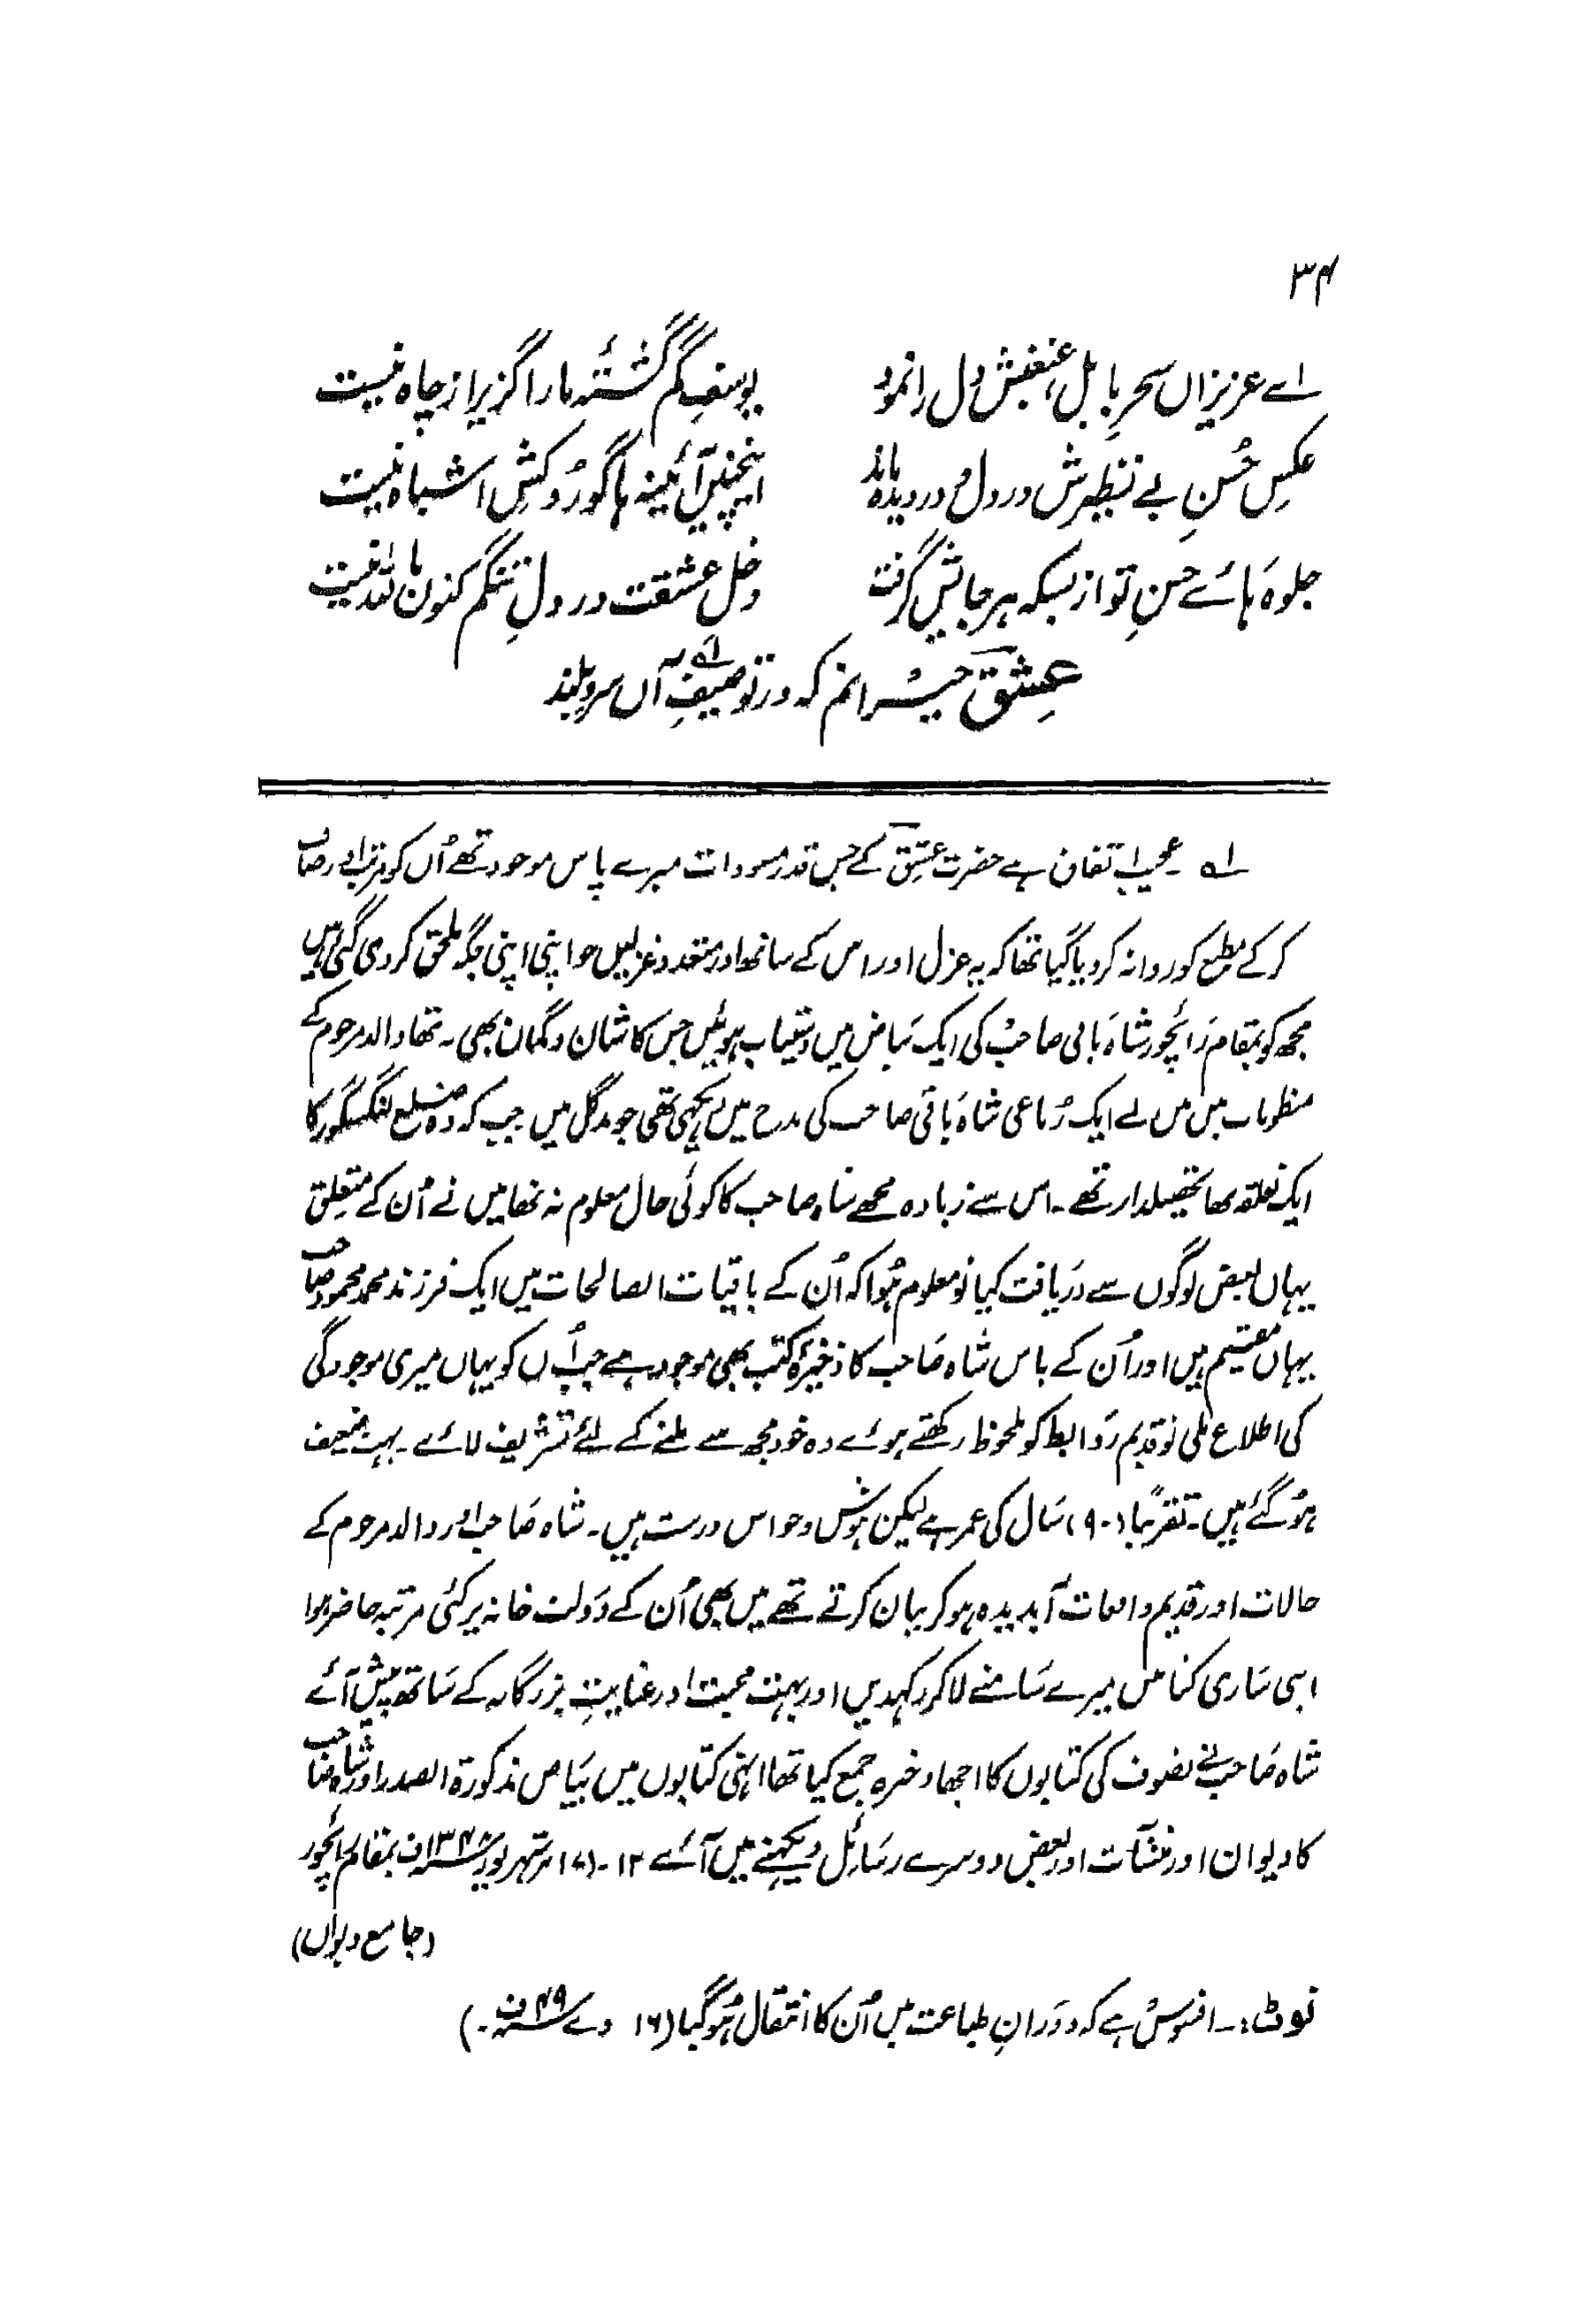 ۳۴
اے عزیزاں سحرِ بابل غبغبش دل را نمود یوسفِ گم گشتۂ ما را گزیر از چاہ نیست
عکسِ حُسنِ بے نظیرش در دل و در دیدہ ماند اینچنیں آئینہ ہا گو رُوکشِ اشباہ نیست
جلوہ ہائے حسنِ تو از بسکہ ہر جایش گرفت دخل عشقت در دلِ تنگم کنون باللہ نیست
عِشق حیرانم کہ در توصیفِ آں سروِ بلند
لہ ۔ عجیب اتفاق ہے حضرت عشق کے جس قدر مسودات میرے پاس موجود تھے اُن کو مرتب اور صاف
کر کے مطبع کو روانہ کر دیا گیا تھا کہ یہ غزل اور اس کے ساتھ اور متعدد غزلیں جو اپنی اپنی جگہ ملحق کر دی گئی ہیں
مجھ کو بمقام رائچور شاہ باقی صاحب کی ایک بیاض میں دستیاب ہوئیں جس کا شان و گمان بھی ۔ تھا والد مرحوم کے
منظومات میں میں نے ایک رُباعی شاہ باقی صاحب کی مدح میں دیکھی تھی جو مدگل میں جب کہ وہ ضلع لنگسگور کا
ایک تعلقہ تھا تحصیلدار تھے ۔ اس سے زیادہ مجھے شاہ صاحب کا کوئی حال معلوم نہ تھا میں نے اُن کے متعلق
یہاں بعض لوگوں سے دریافت کیا تو معلوم ہُوا کہ اُن کے باقیات الصالحات میں ایک فرزند محمد محمود صاحب
یہاں مقیم ہیں اور اُن کے پاس شاہ صاحب کا ذخیرۂ کتب بھی موجود ہے جب اُن کو یہاں میری موجودگی
کی اطلاع ملی تو قدیم روابط کو ملحوظ رکھتے ہوئے وہ خود مجھ سے ملنے کے لئے تشریف لائے ۔ بہت ضعیف
ہو گئے ہیں ۔ تقریباً (۹۰) سال کی عمر ہے لیکن ہوش و حواس درست ہیں ۔ شاہ صاحب اور والد مرحوم کے
حالات اور قدیم واقعات آبدیدہ ہو کر بیان کرتے تھے میں بھی اُن کے دَولت خانہ پر کئی مرتبہ حاضر ہوا
اپنی ساری کتابیں میرے سامنے لا کر رکھدیں اور بہت محبت اور عنایتِ بزرگانہ کے ساتھ پیش آئے
شاہ صاحب نے تصوف کی کتابوں کا اچھا ذخیرہ جمع کیا تھا انہی کتابوں میں بیاض مذکورۃ الصدر اور شاہ صاحب
کا دیوان اور منشآت اور بعض دوسرے رسائل دیکھنے میں آئے ۱۲ ۔ شہریور ۱۳۴۸ف بمقام رائچور
(جامع دیوان)
نوٹ :۔ افسوس ہے کہ دورانِ طباعت میں اُن کا انتقال ہو گیا (۱۶ دے ۴۹ف ۔)